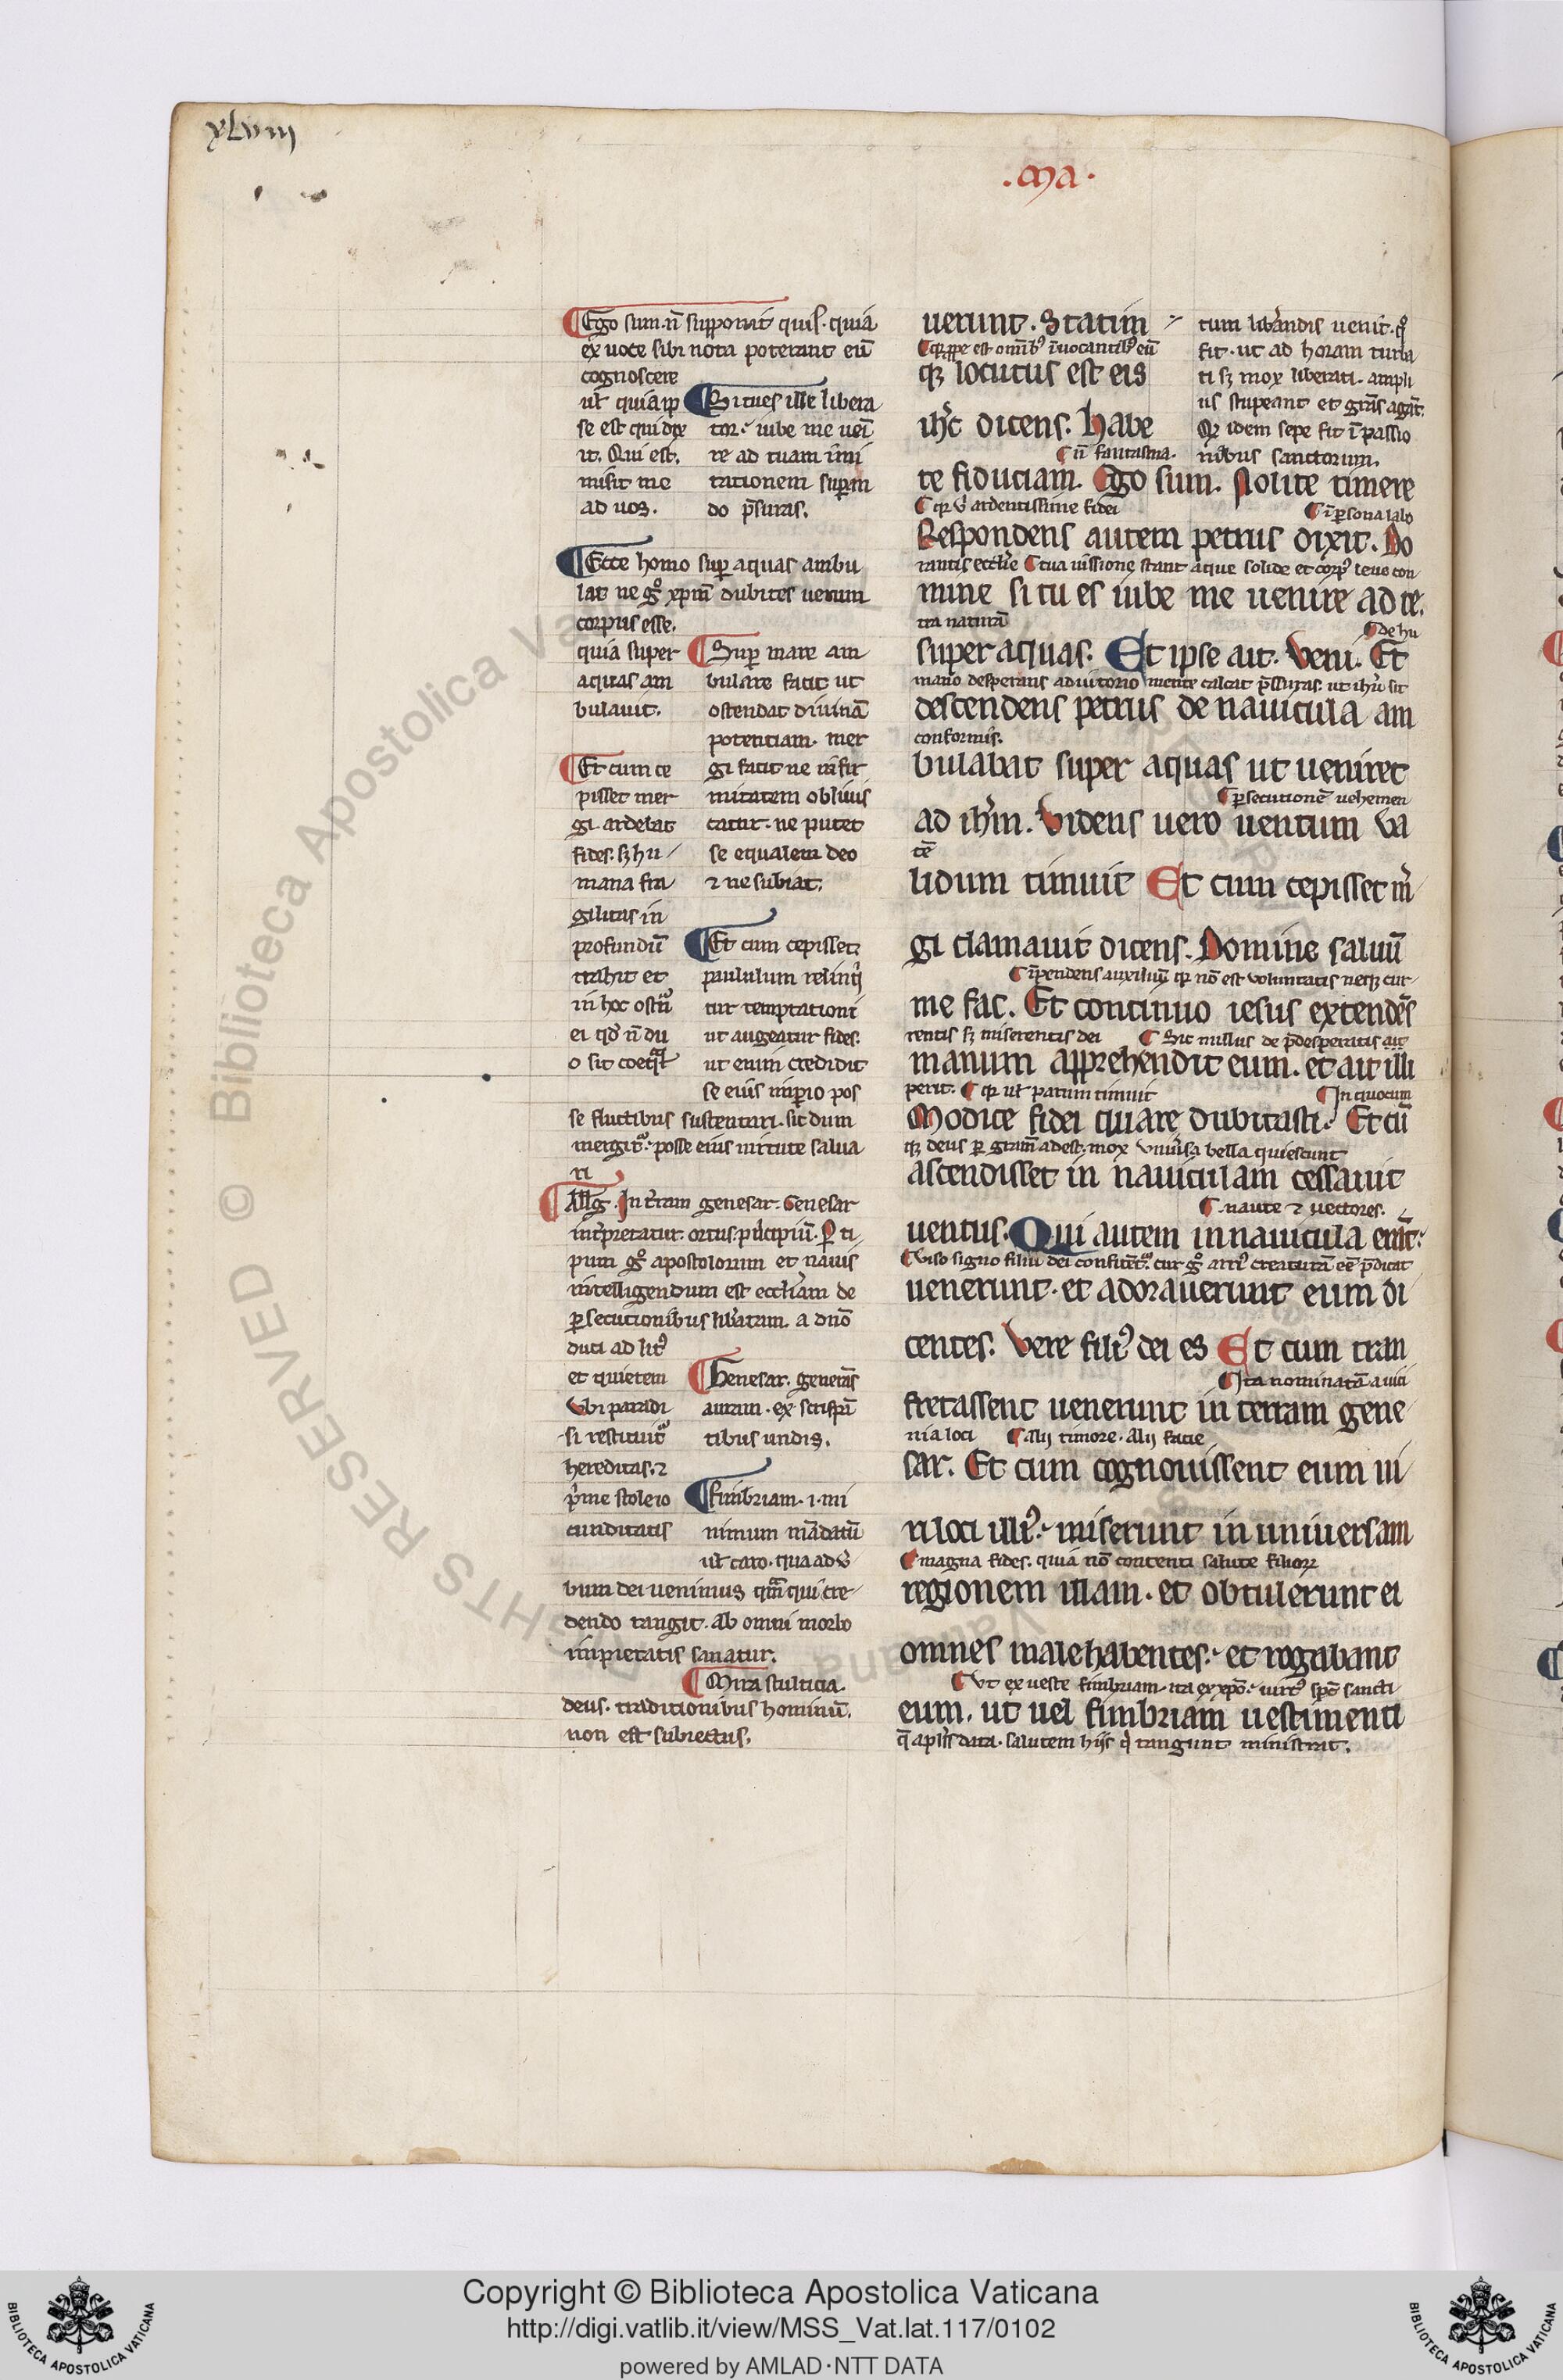 xlviii
.ma.
¶Ego sum. n̄ supponit quis. quia
ex uoce sibi nota poterant eū
cognoscere
ul̄ quia ip
se est qui dix
it. Qui est.
misit me
ad uos.
¶Si tu es ille libera
tor. iube me uei
re ad tuam īmi
tationem superan
do p̄suras.
¶Ecce homo super aquas ambu
lat ne gͦ xp̄m dubites uerum
corpus esse.
quia super
aquas am
bulauit.
¶Sup mare am
bulare facit ut
ostendat diuinā
potentiam. mer
gi facit ne infir
mitatem obliuis
catur. ne putet
se equalem deo
⁊ ne subiat.
¶Et cum ce
pisset mer
gi. ardebat
fides. sꝫ hu
mana fra
gilitas in
profundū
trahit et
in hoc ostn̄
ei qd̄ n̄ du
o sit coeq̄l
¶Et cum cepisset
paululum relinq̄
tur temptationi
ut augeatur fides.
ut enim credidit
se eius imperio pos
se fluctibus sustentari. sic dum
mergit. posse eius uirtute salua
ri
¶Allg. In t̄ram genesar. Genesar
int̄pretatur. ortus. principiū. Per ti
pum gͦ apostolorum et nauis
intelligendum est eccl̄iam de
ꝑsecutionibus libatam. a dn̄o
duci ad lit9
et quietem
Vbi paradi
si restituit
hereditas. ⁊
p̄me stole io
cunditatis
¶Genesar. generās
auram. ex scrispi
tibus undis.
¶Fimbriam. i. mi
nimum mādatū
ul̄ caro. qua ad v̄
bum dei uenimus qm̄ qui cre
dendo tangit. ab omni morbo
impietatis sanatur.
¶Mira stulticia.
deus. traditionibus hominū.
non est subiectus.
uerunt. Statim
¶qꝫ prope est om̄ib9 īuocantib9 eū
qꝫ locutus est eis
ih̄c dicens. Habe
¶n̄ fantasma.
tum lib̄andis uenit. qͦ
fit. ut ad horam turba
ti sꝫ mox liberati. ampli
us stupeant et gr̄as agāt.
Qr idem sepe fit ī passio
nibus sanctorum.
te fiduciam. Ego sum. Nolite timere
¶qr v̄ ardentissime fidei ¶ī ꝑsona labo
Respondens autem petrus dixit. Do
rantis eccl̄ie ¶tua iussione stant aque solide et corp9 leue con
mine si tu es iube me uenire ad te.
tra naturā ¶de hu
super aquas. Et ipse ait. Veni. Et
mano desperans adiutorio mente calcat p̄ssuras. ut ih̄u sit
descendens petrus de nauicula am
conformis.
bulabat super aquas ut ueniret
¶ꝑsecutionē uehemen
ad ih̄m. Videns uero uentum va
tē
lidum timuit Et cum cepisset m̄
gi clamauit dicens. Domine saluū
¶īpendens auxiliū qr nō est voluntatis neqꝫ cur
me fac. Et continuo iesus extendēs
rentis sꝫ miserentis dei ¶Sic nullus de p̄desperatis ait
manum apprehendit eum. et ait illi
perit. ¶qr ul̄ parum timuit ¶In quocum
Modice fidei quare dubitasti. Et cū
qꝫ deus per gratiam adest. mox vniūsa bella quiescunt
ascendisset in nauiculam cessauit
¶naute ⁊ uectores.
uentus. Qui autem in nauicula erāt.
¶Viso signo filiū dei confitent̄. cur gͦ arri9 creaturā eē p̄dicat
uenerunt. et adorauerunt eum di
centes. Vere fili9 dei es Et cum tran
¶Ita nominatā a uici
fretassent uenerunt in terram gene
nia loci ¶Alij timore. Alij facie
sar. Et cum cognouissent eum ui
ri loci illi9. miserunt in uniuersam
¶magna fides. quia nō contenti salute filiorꝝ
regionem illam. et obtulerunt ei
omnes male habentes. et rogabant
¶Vt ex ueste fimbriam. ita ex xp̄o. uirt9 sp̄c sancti
eum. ut uel fimbriam uestimenti
q̄ apl̄is data. salutem hijs q̄ tangunt ministrat.
Copyright © Biblioteca Apostolica Vaticana
http://digi.vatlib.it/view/MSS_Vat.lat.117/0102
powered by AMLAD·NTT DATA
BIBLIOTECA APOSTOLICA VATICANA
BIBLIOTECA APOSTOLICA VATICANA